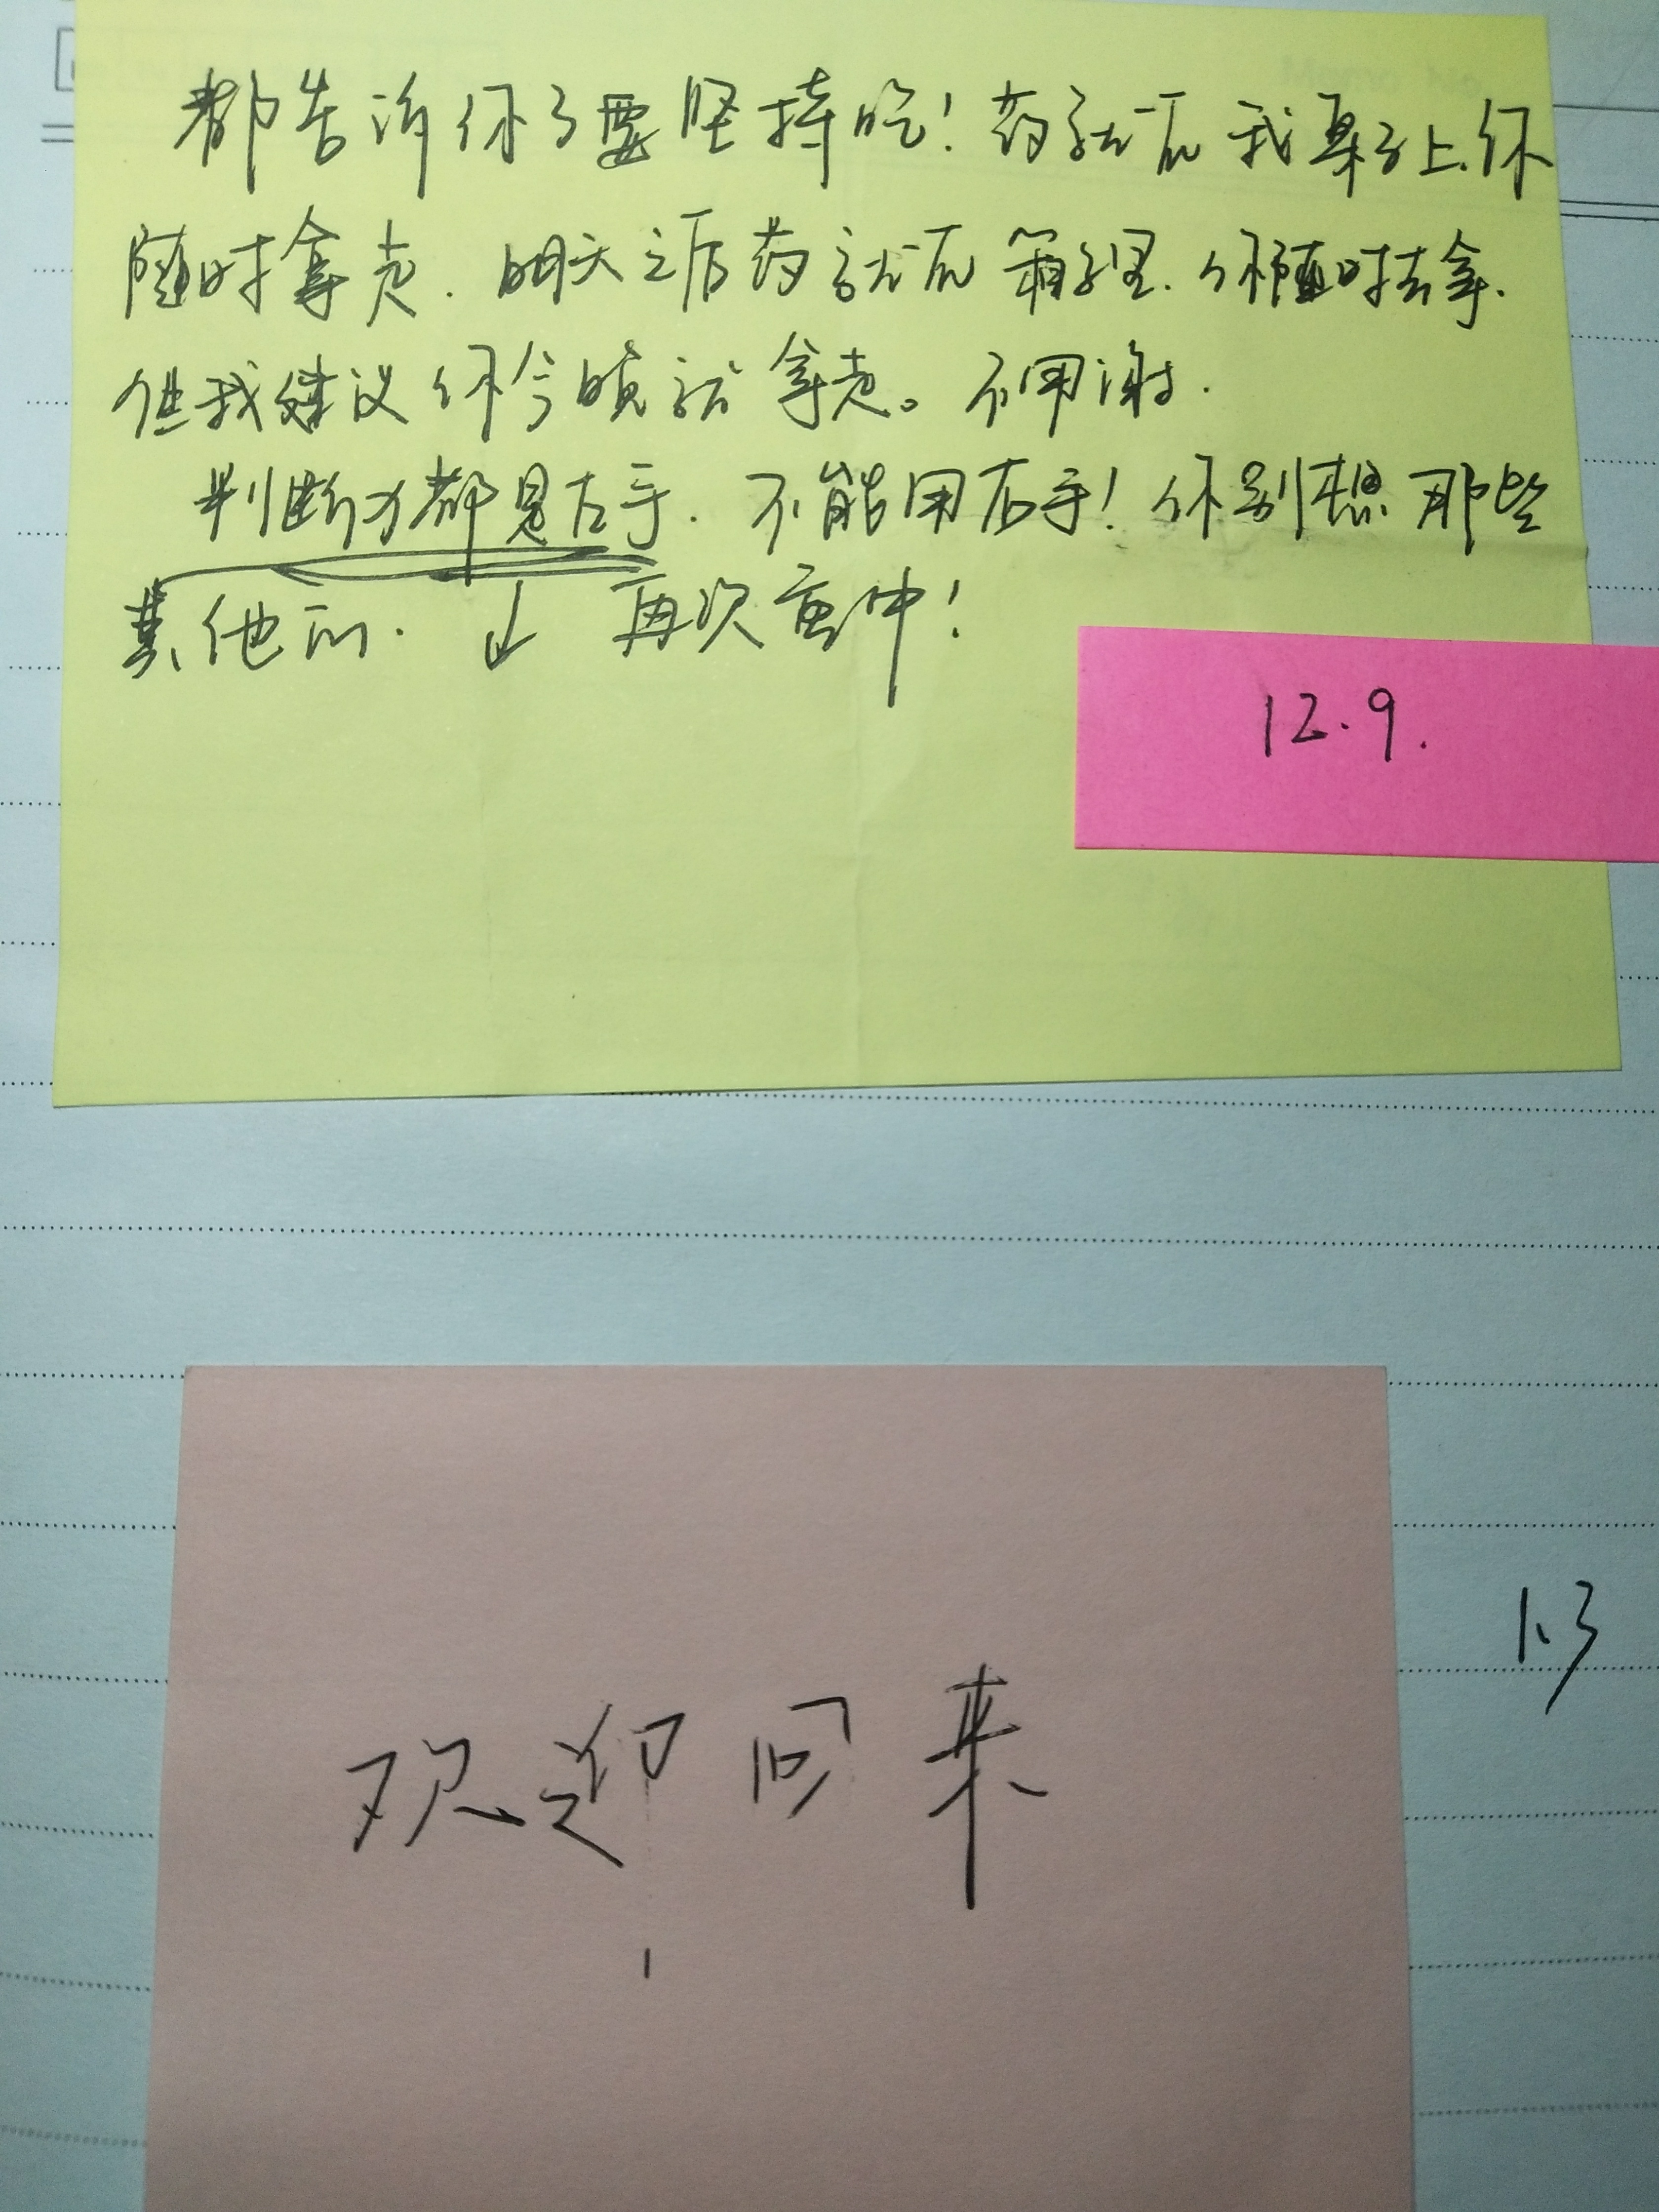 都告诉你了要坚持吃！药就在我桌子上.你
随时拿走.明天之后药就在箱子里.你随时去拿.
但我建议你今晚就拿走。不用谢.
判断力都是左手.不能用右手！你别想那些
其他的.↓再次重申！
12.9.
1.3
欢迎回来